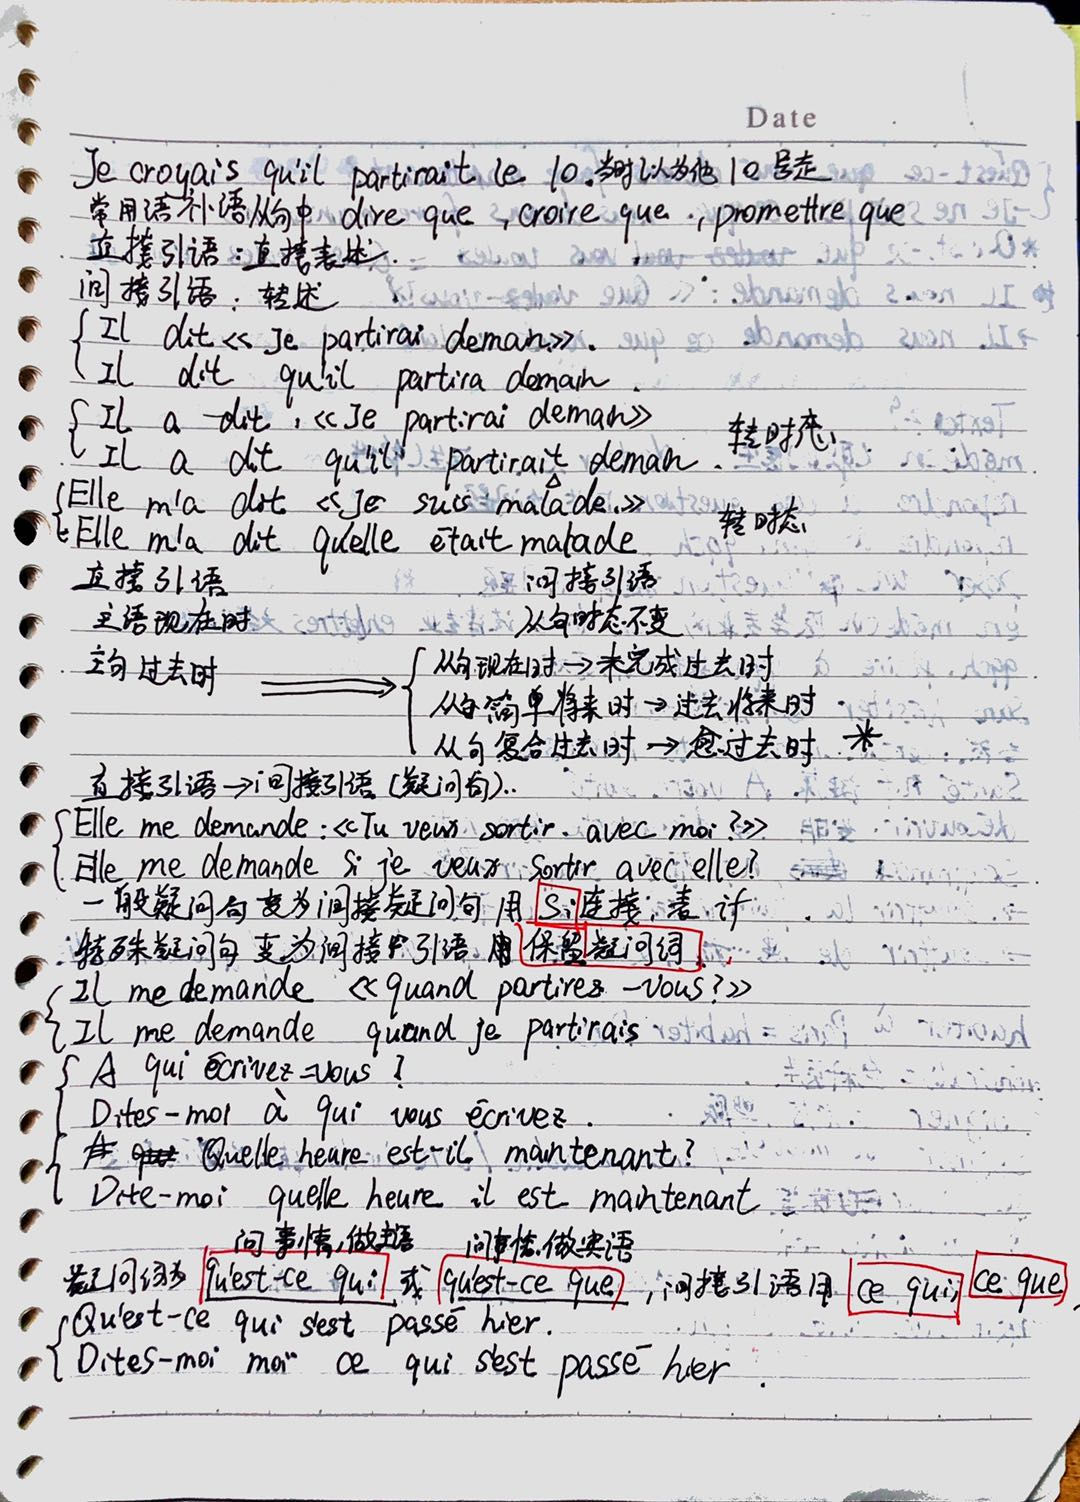 Date
Je croyais qu'il partirait le 10. 当时以为他10号走
常用语补语从句中 dire que, croire que, promettre que
直接引语:直接表述.
间接引语:转述
Il dit << Je partirai deman >>.
Il dit qu'il partira demain.
Il a dit, << Je partirai deman >>
Il a dit qu'il partirait deman. 转时态,
Elle m'a dit << Je suis malade. >>
Elle m'a dit qu'elle était malade 转时态,
直接引语 间接引语
主语现在时 从句时态不变
主句过去时 ⟹ 从句现在时→未完成过去时
从句简单将来时→过去将来时
从句复合过去时→愈过去时 *
直接引语→间接引语(疑问句)..
Elle me demande: << Tu veux sortir avec moi? >>
Elle me demande si je veux sortir avec elle?
一般疑问句变为间接疑问句 用 Si 连接;
特殊疑问句 变为间接引语 保留疑问词
Il me demande << quand partirez-vous? >>
Il me demande quand je partirais
A qui écrivez=vous?
Dites-moi à qui vous écrivez.
Quelle heure est-il maintenant?
Dite-moi quelle heure il est maintenant
问事情,做主语 问事情,做宾语
疑问词为 qu'est-ce qui 或 qu'est-ce que, 间接引语用 ce qui, ce que
Qu'est-ce qui s'est passé hier.
Dites-moi moi ce qui s'est passé hier.